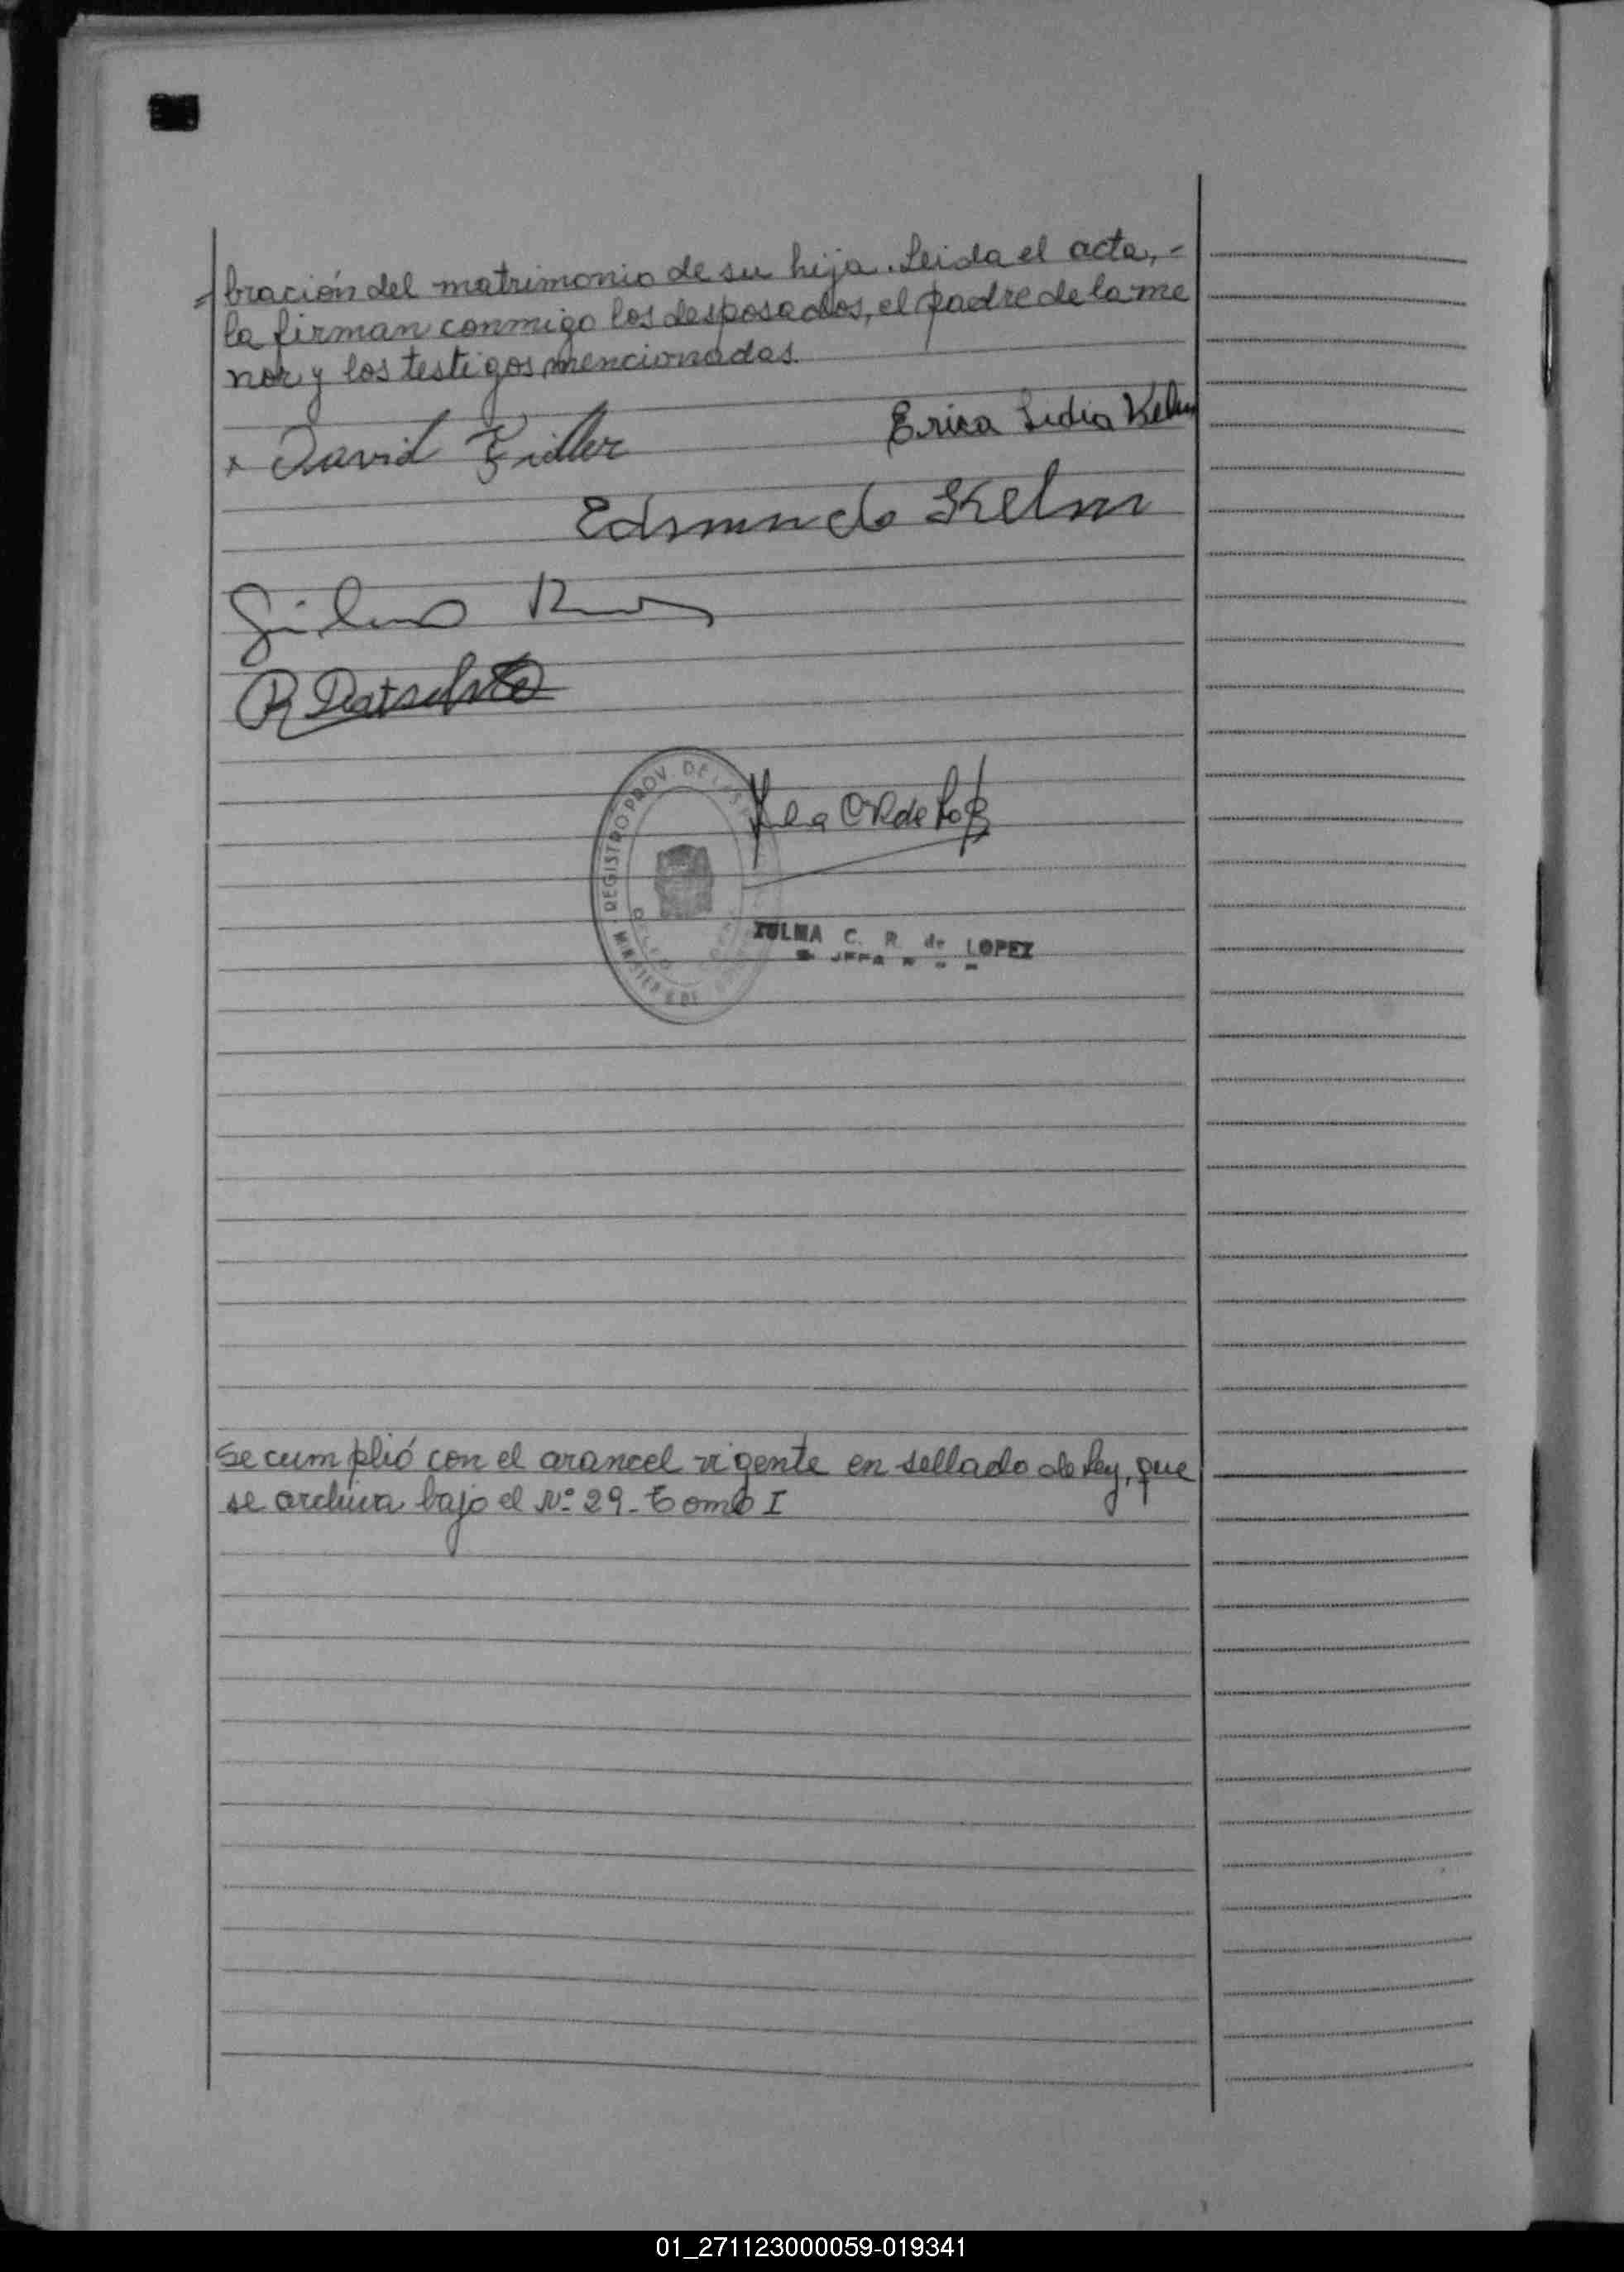 =bración del matrimonio de su hija. Leida el acta,-
la firman conmigo los desposados, el padre de la me
nor y los testigos mencionados.
x David Fidler
Erica Lidia Kelm
Edmundo Kelm
REGISTRO PROV. DE
ZULMA C. R. de LOPEZ
JEFA
Se cumplió con el arancel vigente en sellado de Ley, que
se archiva bajo el Nº 29 - Tomo I
01_271123000059-019341